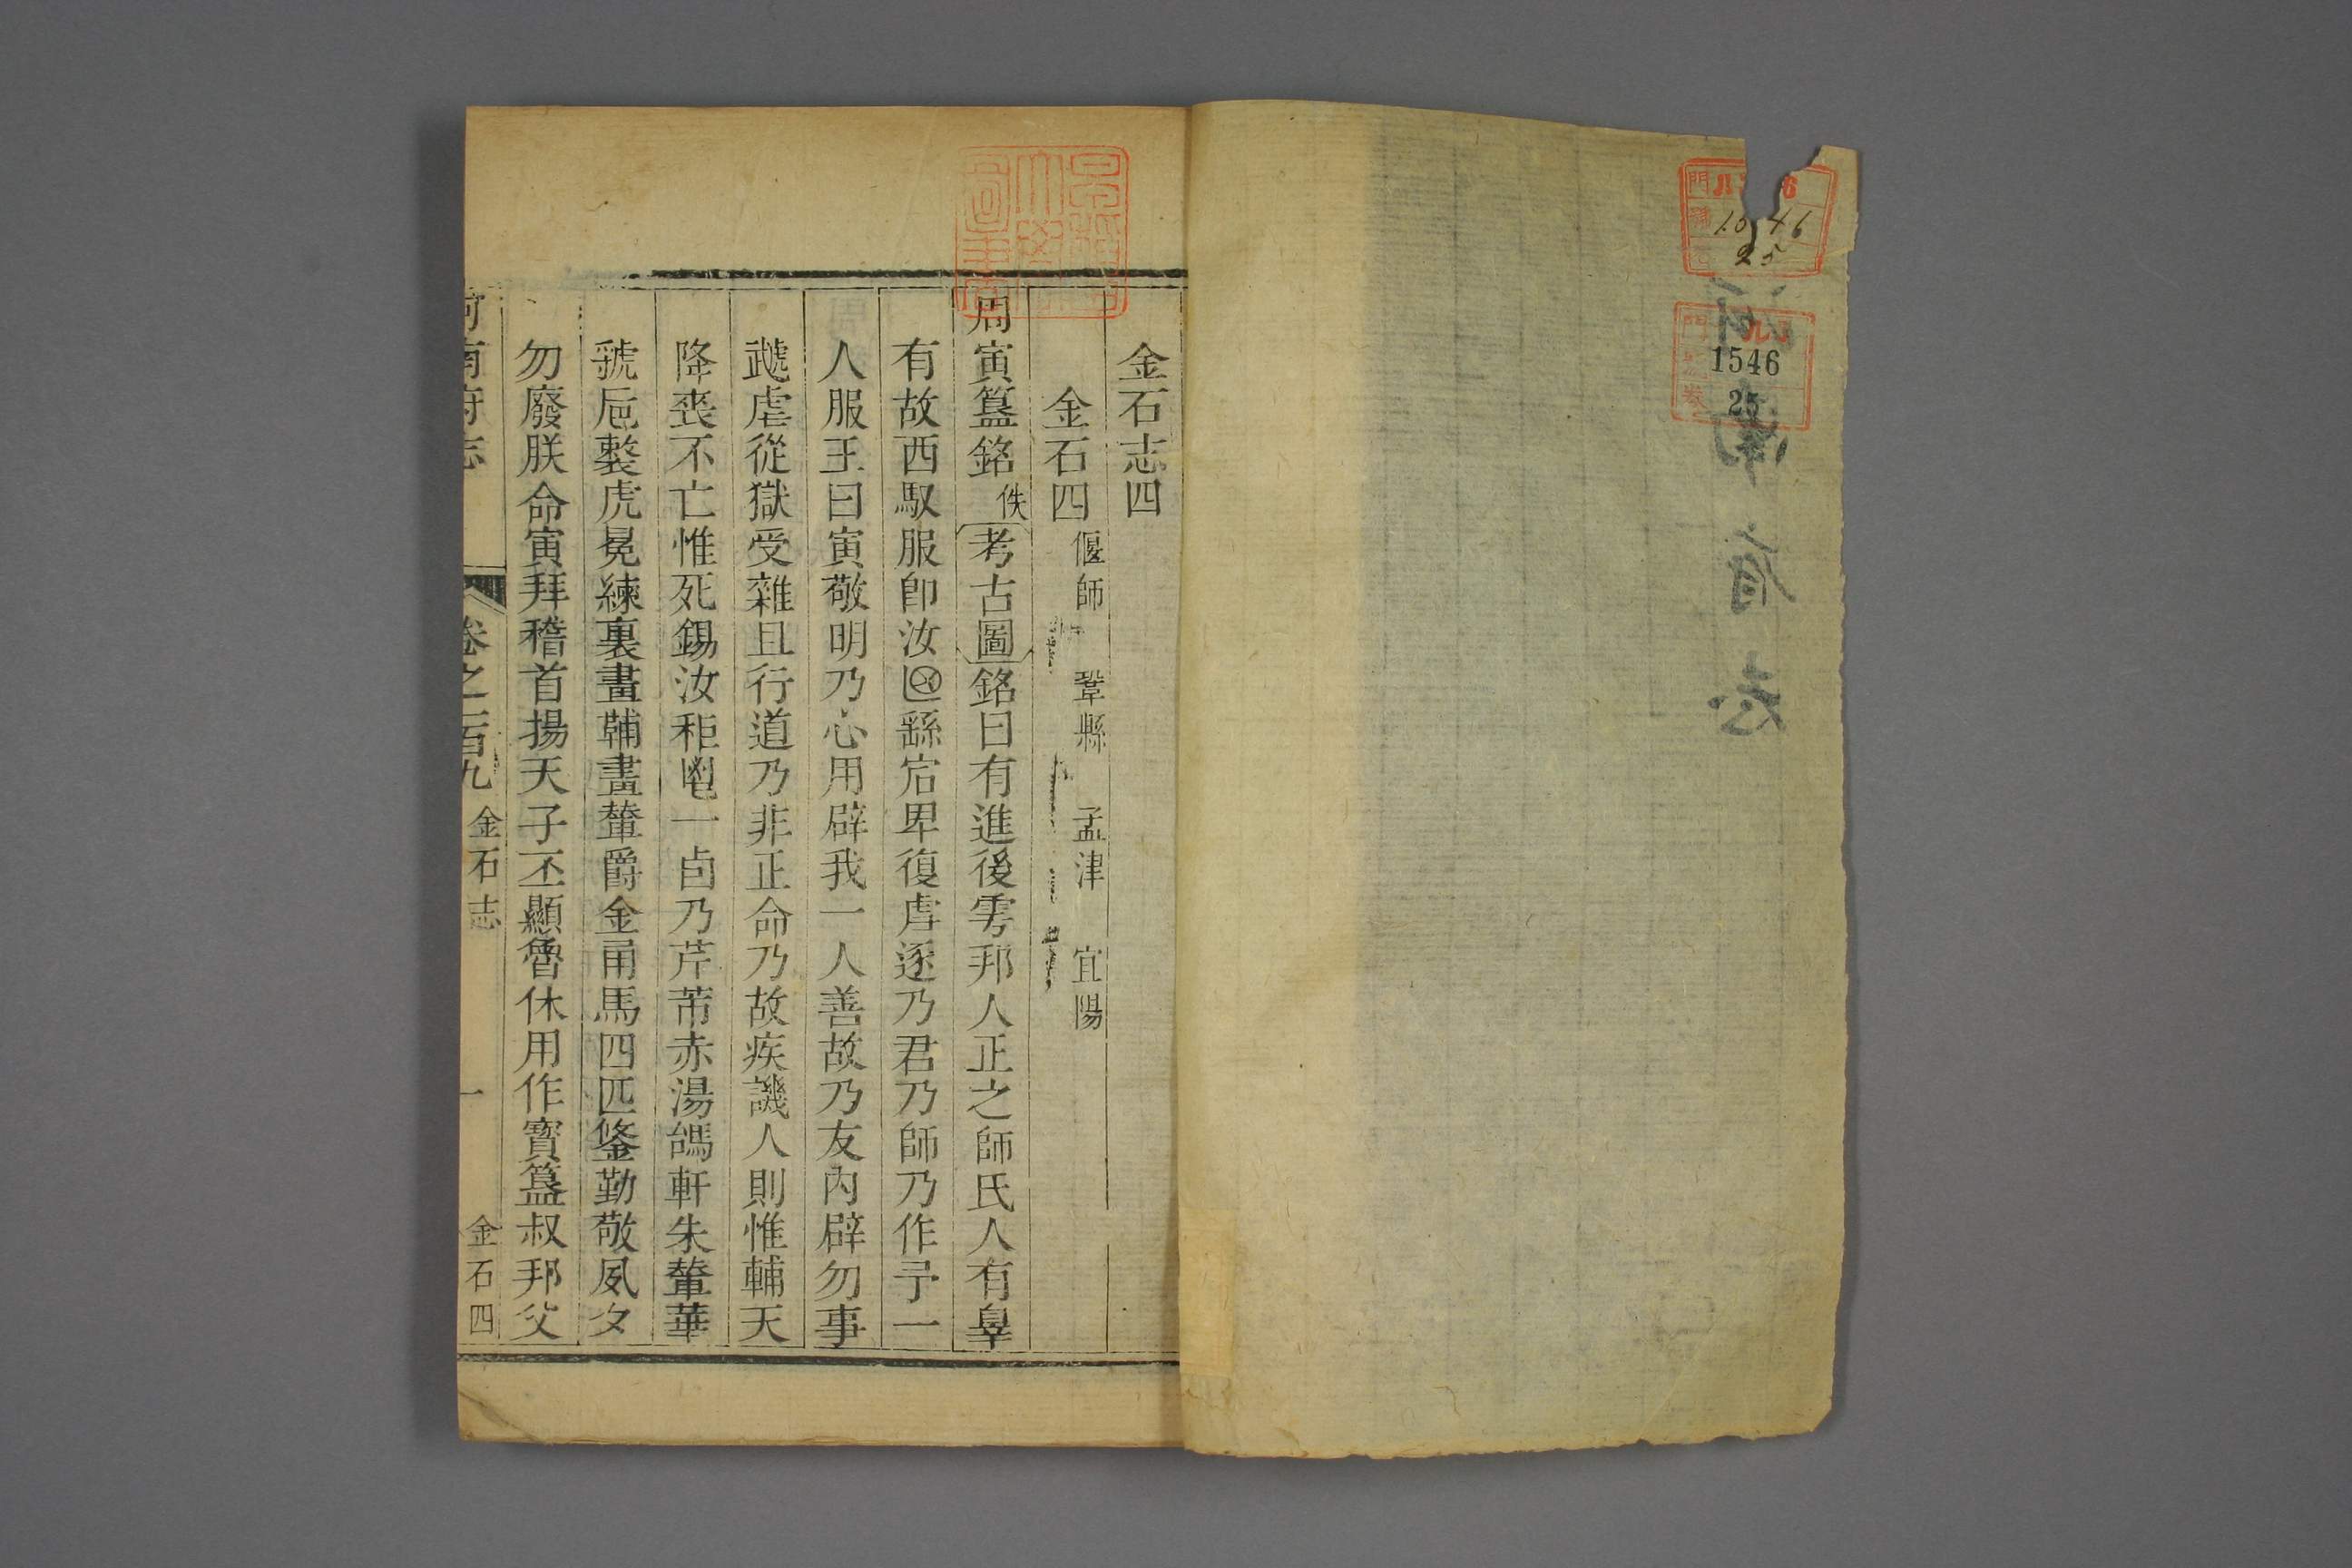 1546
25
1546
25
金石志四
金石四 偃師 鞏縣 孟津 宜陽
周寅簋銘 佚 考古圖 銘曰有進後雩邦人正之師氏人有辠
有故西馭服卽汝 繇宕卑復虐逐乃君乃師乃作予一
人服王曰寅敬明乃心用辟我一人善故乃友內辟勿事
虣虐從獄受雜且行道乃非正命乃故疾譏人則惟輔天
降喪不亡惟死錫汝秬鬯一卣乃芹芾赤湯 軒朱 華
虢 虎冕練裏畫 畫 爵金甬馬四匹鋚勒敬夙夕
勿廢朕命寅拜稽首揚天子丕顯魯休用作寶簋叔邦父
河南府志 卷之一百九 金石志 一 金石四